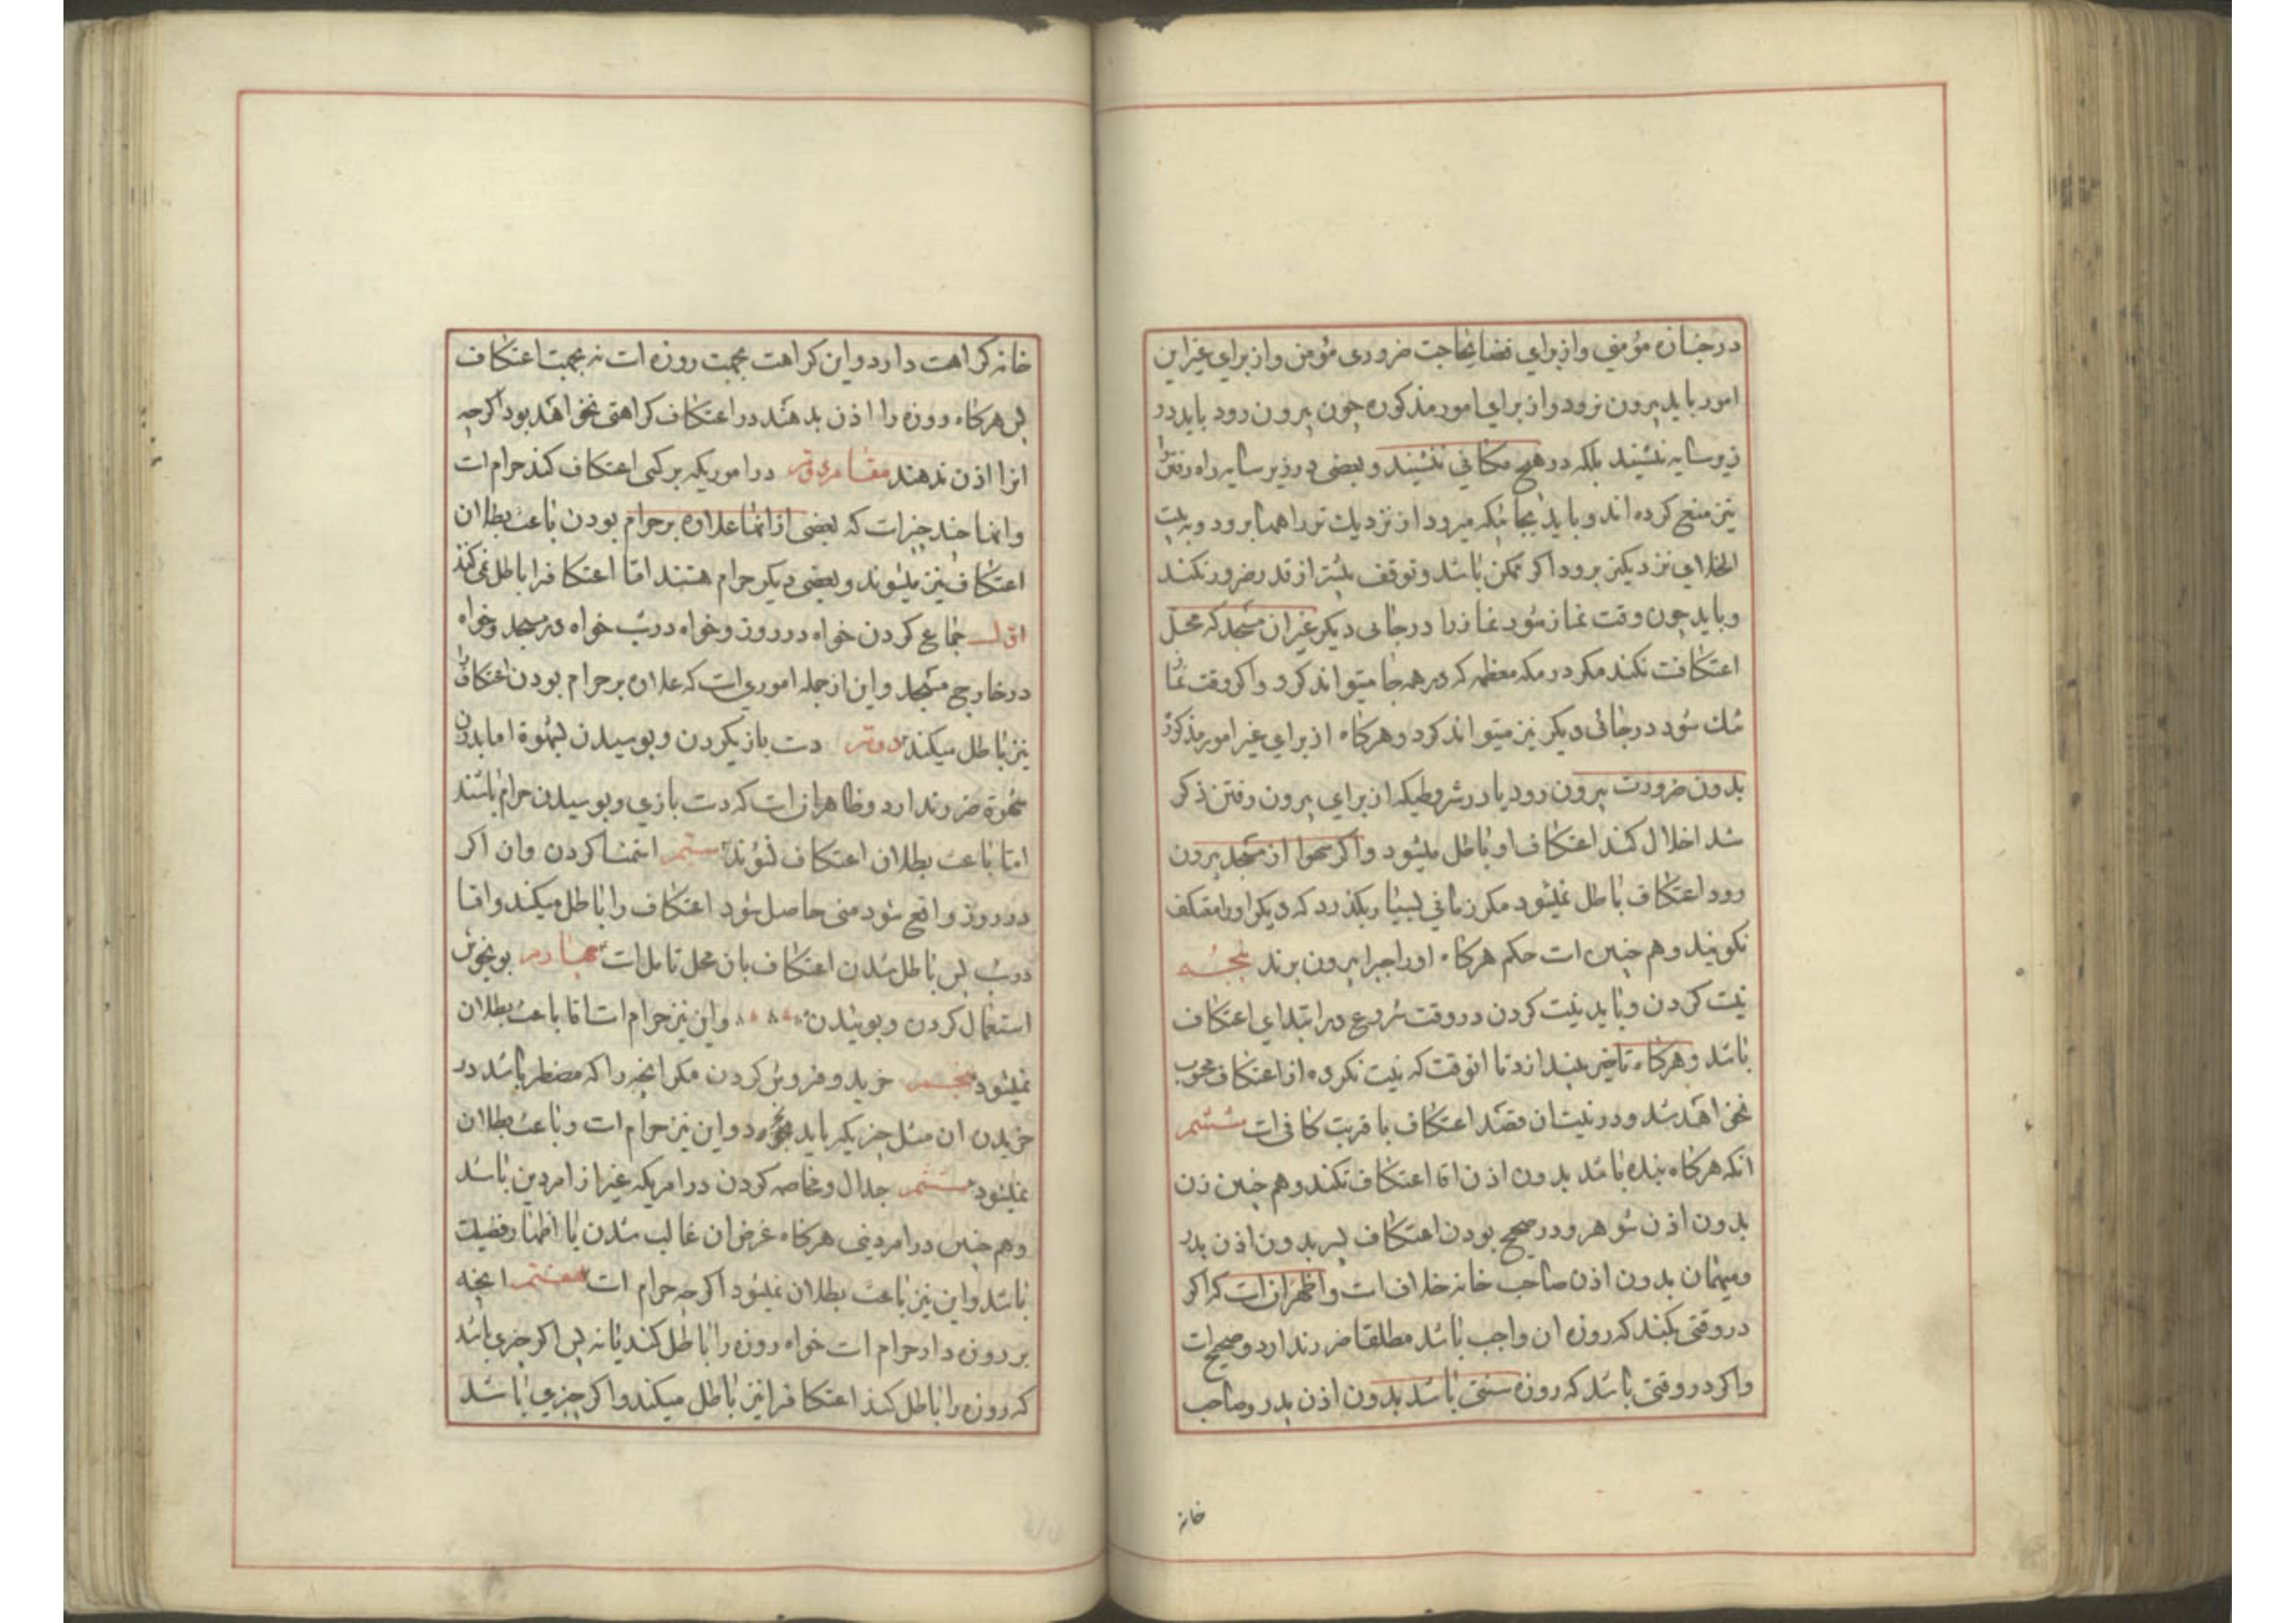 در جنازه مؤمنی و از برای قضای حاجت ضروری مؤمن و از برای غیر این
امور باید بیرون نرود و از برای امور مذکوره چون بیرون رود باید در
زیر سایه ننشیند بلکه در هیچ مکانی ننشیند و بعضی در زیر سایه راه رفتن را
نیز منع کرده اند و باید بجائیکه میرود از نزدیک تر راهها برود و به بیت
الخلای نزدیکتر برود اگر ممکن باشد و توقف بیشتر از قدر ضرور نکند
و باید چون وقت نماز شود نماز را در جائی دیگر غیر ان مسجد که محل
اعتکافت نکند مکر در مکه معظمه که در همه جا میتواند کرد و اکر وقت نماز
تنک شود در جائی دیکر نیز میتواند کرد و هرکاه از برای غیر امور مذکوره
بدون ضرورت بیرون رود یا در شروطیکه از برای بیرون رفتن ذکر
شد اخلال کند اعتکاف او باطل میشود و اکر سهوا از مسجد بیرون
رود اعتکاف باطل نمیشود مکر زمانی بسیار بکذرد که دیکر او را معتکف
نکویند و هم چنین است حکم هرکاه او را جبرا بیرون برند پنجم
نیت کردن و باید نیت کردن در وقت شروع در ابتدای اعتکاف
باشد و هرکاه تاخیر بیندازد تا انوقت که نیت نکرده از اعتکاف محسوب
نخواهد شد و در نیت ان قصد اعتکاف با قربت کافی است ششم
انکه هرکاه بنده باشد بدون اذن اقا اعتکاف نکند و هم چنین زن
بدون اذن شوهر و در صحیح بودن اعتکاف پسر بدون اذن پدر
و میهمان بدون اذن صاحب خانه خلاف است و اظهر ان است که اکر
در وقتی بکند که روزه ان واجب باشد مطلقا ضرر ندارد و صحیح است
و اکر در وقتی باشد که روزه سنتی باشد بدون اذن پدر و صاحب
خانه
خانه کراهت دارد و این کراهت بجهت روزه است نه بجهت اعتکاف
پس هرکاه روزه را اذن بدهند در اعتکاف کراهتی نخواهد بود اکرچه
انرا اذن ندهند مقام دوم در اموریکه بر کسی اعتکاف کند حرام است
و انها چند چیز است که بعضی از انها علاوه بر حرام بودن باعث بطلان
اعتکاف نیز میشوند و بعضی دیکر حرام هستند اما اعتکاف را باطل نمی کنند
اول جماع کردن خواه در روز و خواه در شب خواه در مسجد و خواه
در خارج مسجد و این از جمله اموری است که علاوه بر حرام بودن اعتکاف را
نیز باطل میکند دوم دست بازیکردن و بوسیدن بشهوة اما بدون
شهوة ضرر ندارد و ظاهر ان است که دست بازی و بوسیدن حرام باشند
اما باعث بطلان اعتکاف نشوند سیم استمنا کردن و ان اکر
در روز واقع شود منی حاصل شود اعتکاف را باطل میکند و اما
در شب پس باطل شدن اعتکاف بان محل تامل است چهارم بوی خوش
استعمال کردن و بوئیدن و این نیز حرام است اما باعث بطلان
نمیشود پنجم خرید و فروش کردن مکر انچه را که مضطر باشد در
خریدن ان مثل چیزیکه باید بخورد و این نیز حرام است و باعث بطلان
نمیشود ششم جدال و مخاصمه کردن در امریکه غیر از امر دین باشد
و هم چنین در امر دینی هرکاه غرض ان غالب شدن یا اظهار فضیلت
باشد و این نیز باعث بطلان نمیشود اکرچه حرام است هفتم انچه
بر روزه دار حرام است خواه روزه را باطل کند یا نه پس اکر چیزی باشد
که روزه را باطل کند اعتکاف را نیز باطل میکند و اکر چیزی باشد